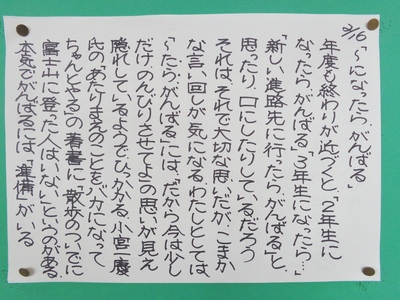 3/16 「〜になったら、がんばる」
年度も終わりが近づくと、「2年生に
なったら、がんばる」「3年生になったら…」
「新しい進路先に行ったら、がんばる」と、
思ったり、口にしたりしているだろう
それは、それで大切な思いだが、こまか
な言い回しが気になるわたしとしては
「〜たら、がんばる」には、だから今は少し
だけ、のんびりさせてよの思いが見え
隠れしているようでひっかかる。小宮一慶
氏の「あたりまえのことをバカになって
ちゃんとやる」の著書に「散歩のついでに
富士山に登った人はいない」というのがある
本気でがんばるには「準備」がいる